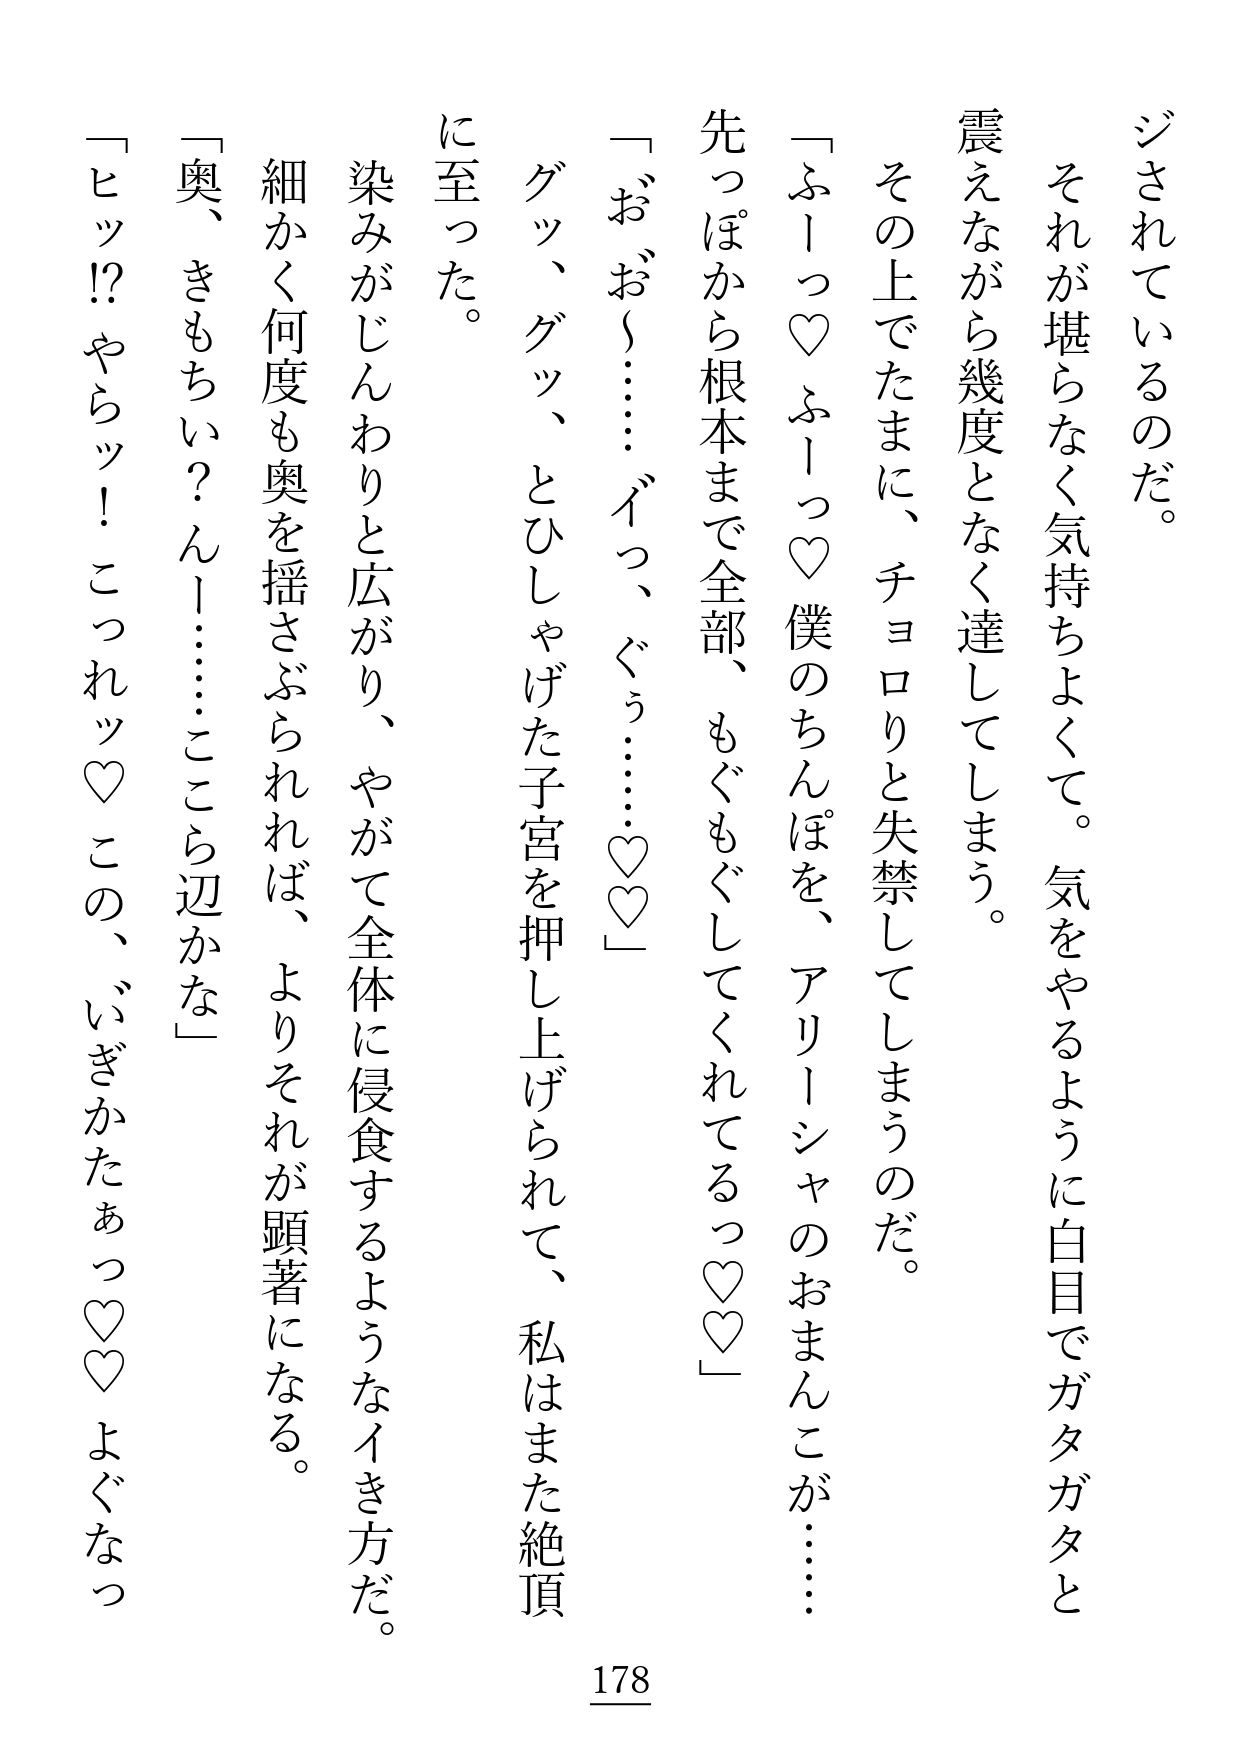 ジされているのだ。
それが堪らなく気持ちよくて。気をやるように白目でガタガタと
震えながら幾度となく達してしまう。
その上でたまに、チョロりと失禁してしまうのだ。
「ふーっ♡ ふーっ♡ 僕のちんぽを、アリーシャのおまんこが……
先っぽから根本まで全部、もぐもぐしてくれてるっ♡♡」
「お゛お゛〜…… イ゛っ、ぐぅ……♡♡」
グッ、グッ、とひしゃげた子宮を押し上げられて、私はまた絶頂
に至った。
染みがじんわりと広がり、やがて全体に侵食するようなイき方だ。
細かく何度も奥を揺さぶられれば、よりそれが顕著になる。
「奥、きもちい？ んー……ここら辺かな」
「ヒッ⁉ やらッ！ こっれッ♡ この、い゛ぎかたぁっ♡♡ よぐなっ
178